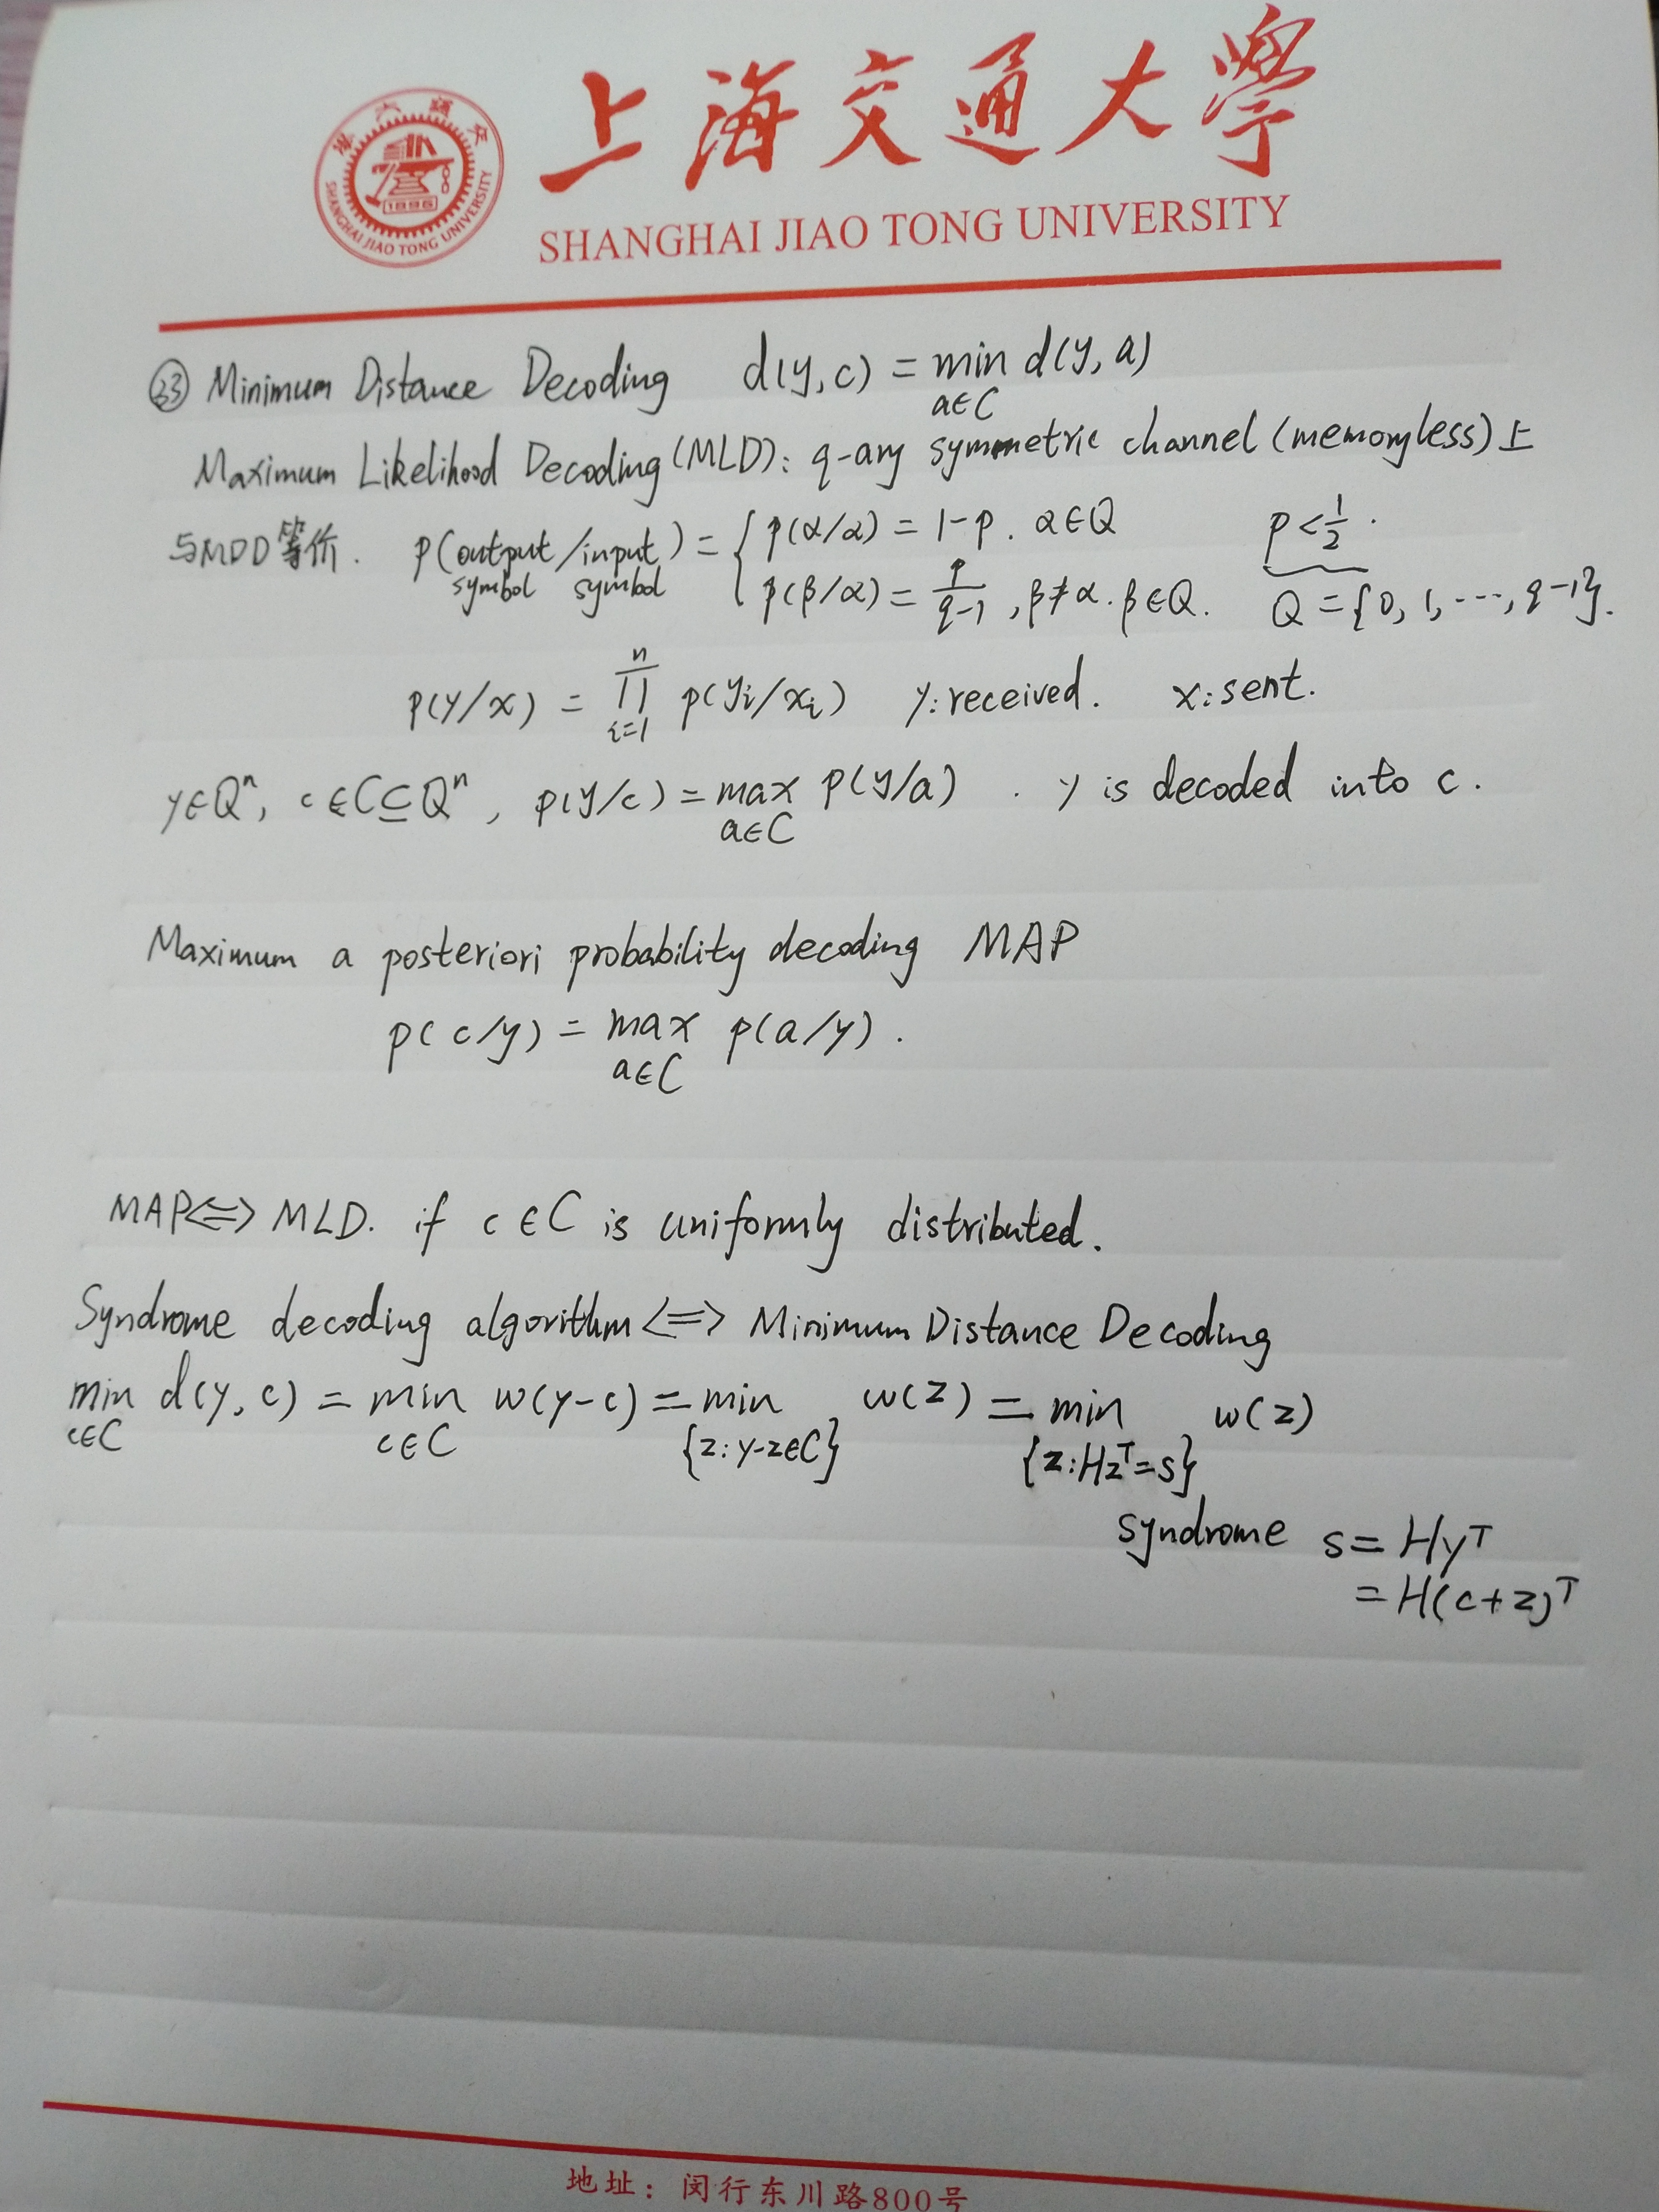 上海交通大學
SHANGHAI JIAO TONG UNIVERSITY
1896
SHANGHAI JIAO TONG UNIVERSITY
㉝ Minimum Distance Decoding d(y,c) = min_{a∈C} d(y,a)
Maximum Likelihood Decoding (MLD): q-ary symmetric channel (memoryless) 上
与MDD等价. p(output symbol / input symbol) = { p(α/α) = 1-p. α∈Q p<1/2.
p(β/α) = p/(q-1), β≠α. β∈Q. Q={0, 1, ..., q-1}.
p(y/x) = ∏_{i=1}^{n} p(y_i/x_i) y: received. x: sent.
y∈Q^n, c∈C⊆Q^n, p(y/c) = max_{a∈C} p(y/a). y is decoded into c.
Maximum a posteriori probability decoding MAP
p(c/y) = max_{a∈C} p(a/y).
MAP⇔MLD. if c∈C is uniformly distributed.
Syndrome decoding algorithm ⇔ Minimum Distance Decoding
min_{c∈C} d(y,c) = min_{c∈C} w(y-c) = min_{{z: y-z∈C}} w(z) = min_{{z: Hz^T=s}} w(z)
syndrome s = Hy^T
= H(c+z)^T
地址：闵行东川路800号